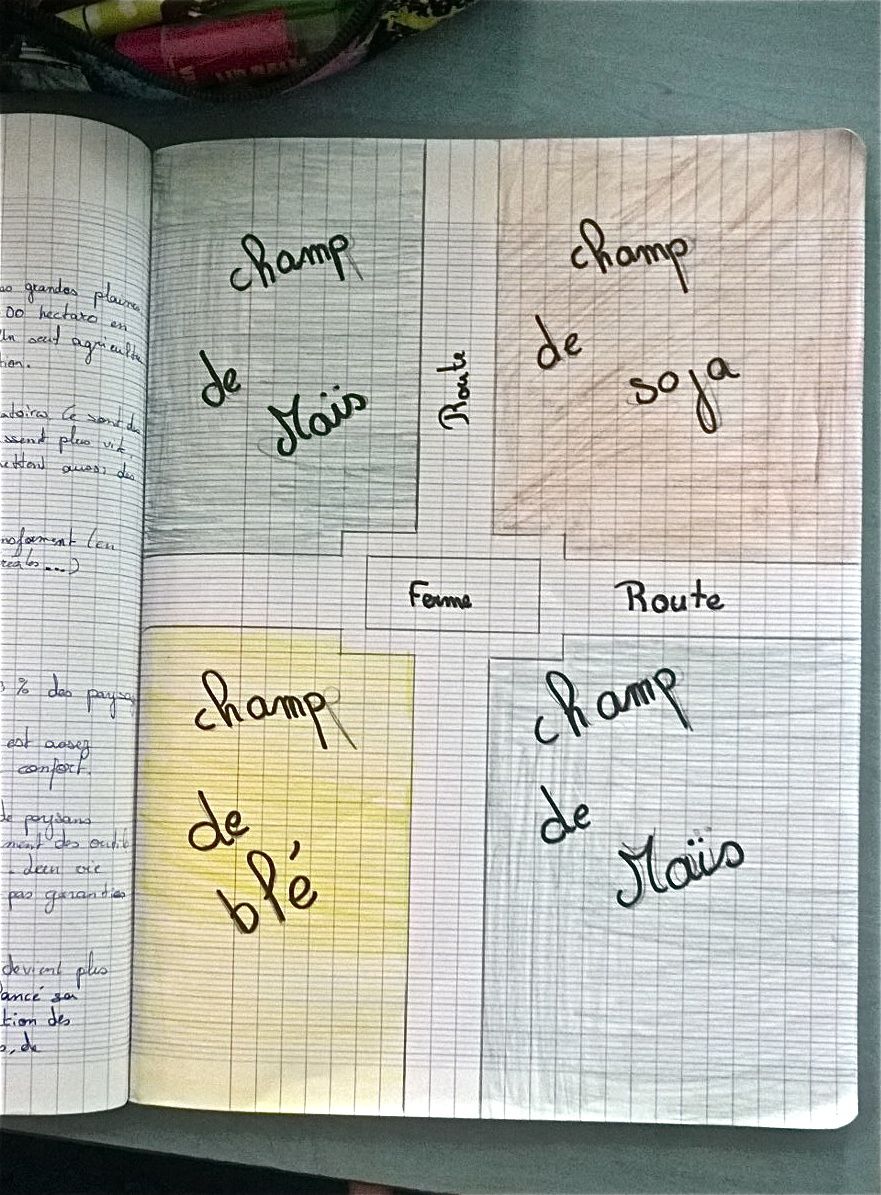 grandes plaines
00 hectares en
Un seul agriculte
tion.
ce sont des
ssent plus vit
ettent aussi des
nsforment (en
reales...)
% des paysa
est assez
confort.
de paysans
ment des outils
pas garanties
devient plus
ancé sa
tion des
s, de
champ
de
Maïs
Route
champ
de
soja
Ferme
Route
champ
de
blé
champ
de
Maïs